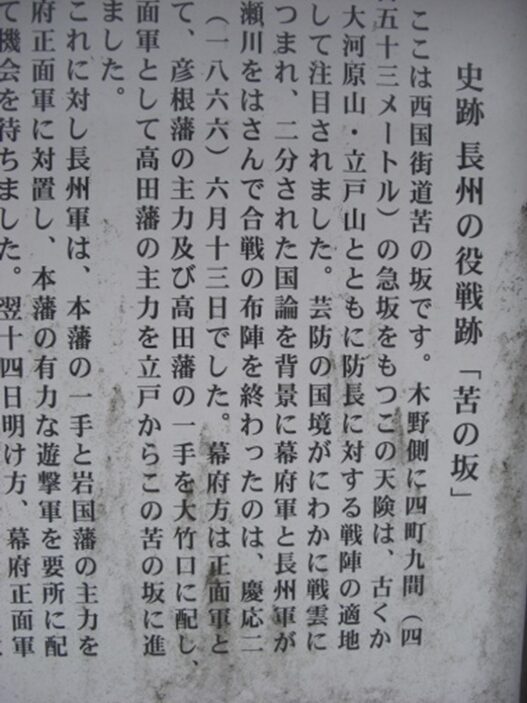 史跡 長州の役戦跡「苦の坂」
ここは西国街道苦の坂です。木野側に四町九間（四
五十三メートル）の急坂をもつこの天険は、古くか
大河原山・立戸山とともに防長に対する戦陣の適地
して注目されました。芸防の国境がにわかに戦雲に
つまれ、二分された国論を背景に幕府軍と長州軍が
瀬川をはさんで合戦の布陣を終わったのは、慶応二
（一八六六）六月十三日でした。幕府方は正面軍と
て、彦根藩の主力及び高田藩の一手を大竹口に配し、
面軍として高田藩の主力を立戸からこの苦の坂に進
ました。
これに対し長州軍は、本藩の一手と岩国藩の主力を
府正面軍に対置し、本藩の有力な遊撃軍を要所に配
て機会を待ちました。翌十四日明け方、幕府正面軍